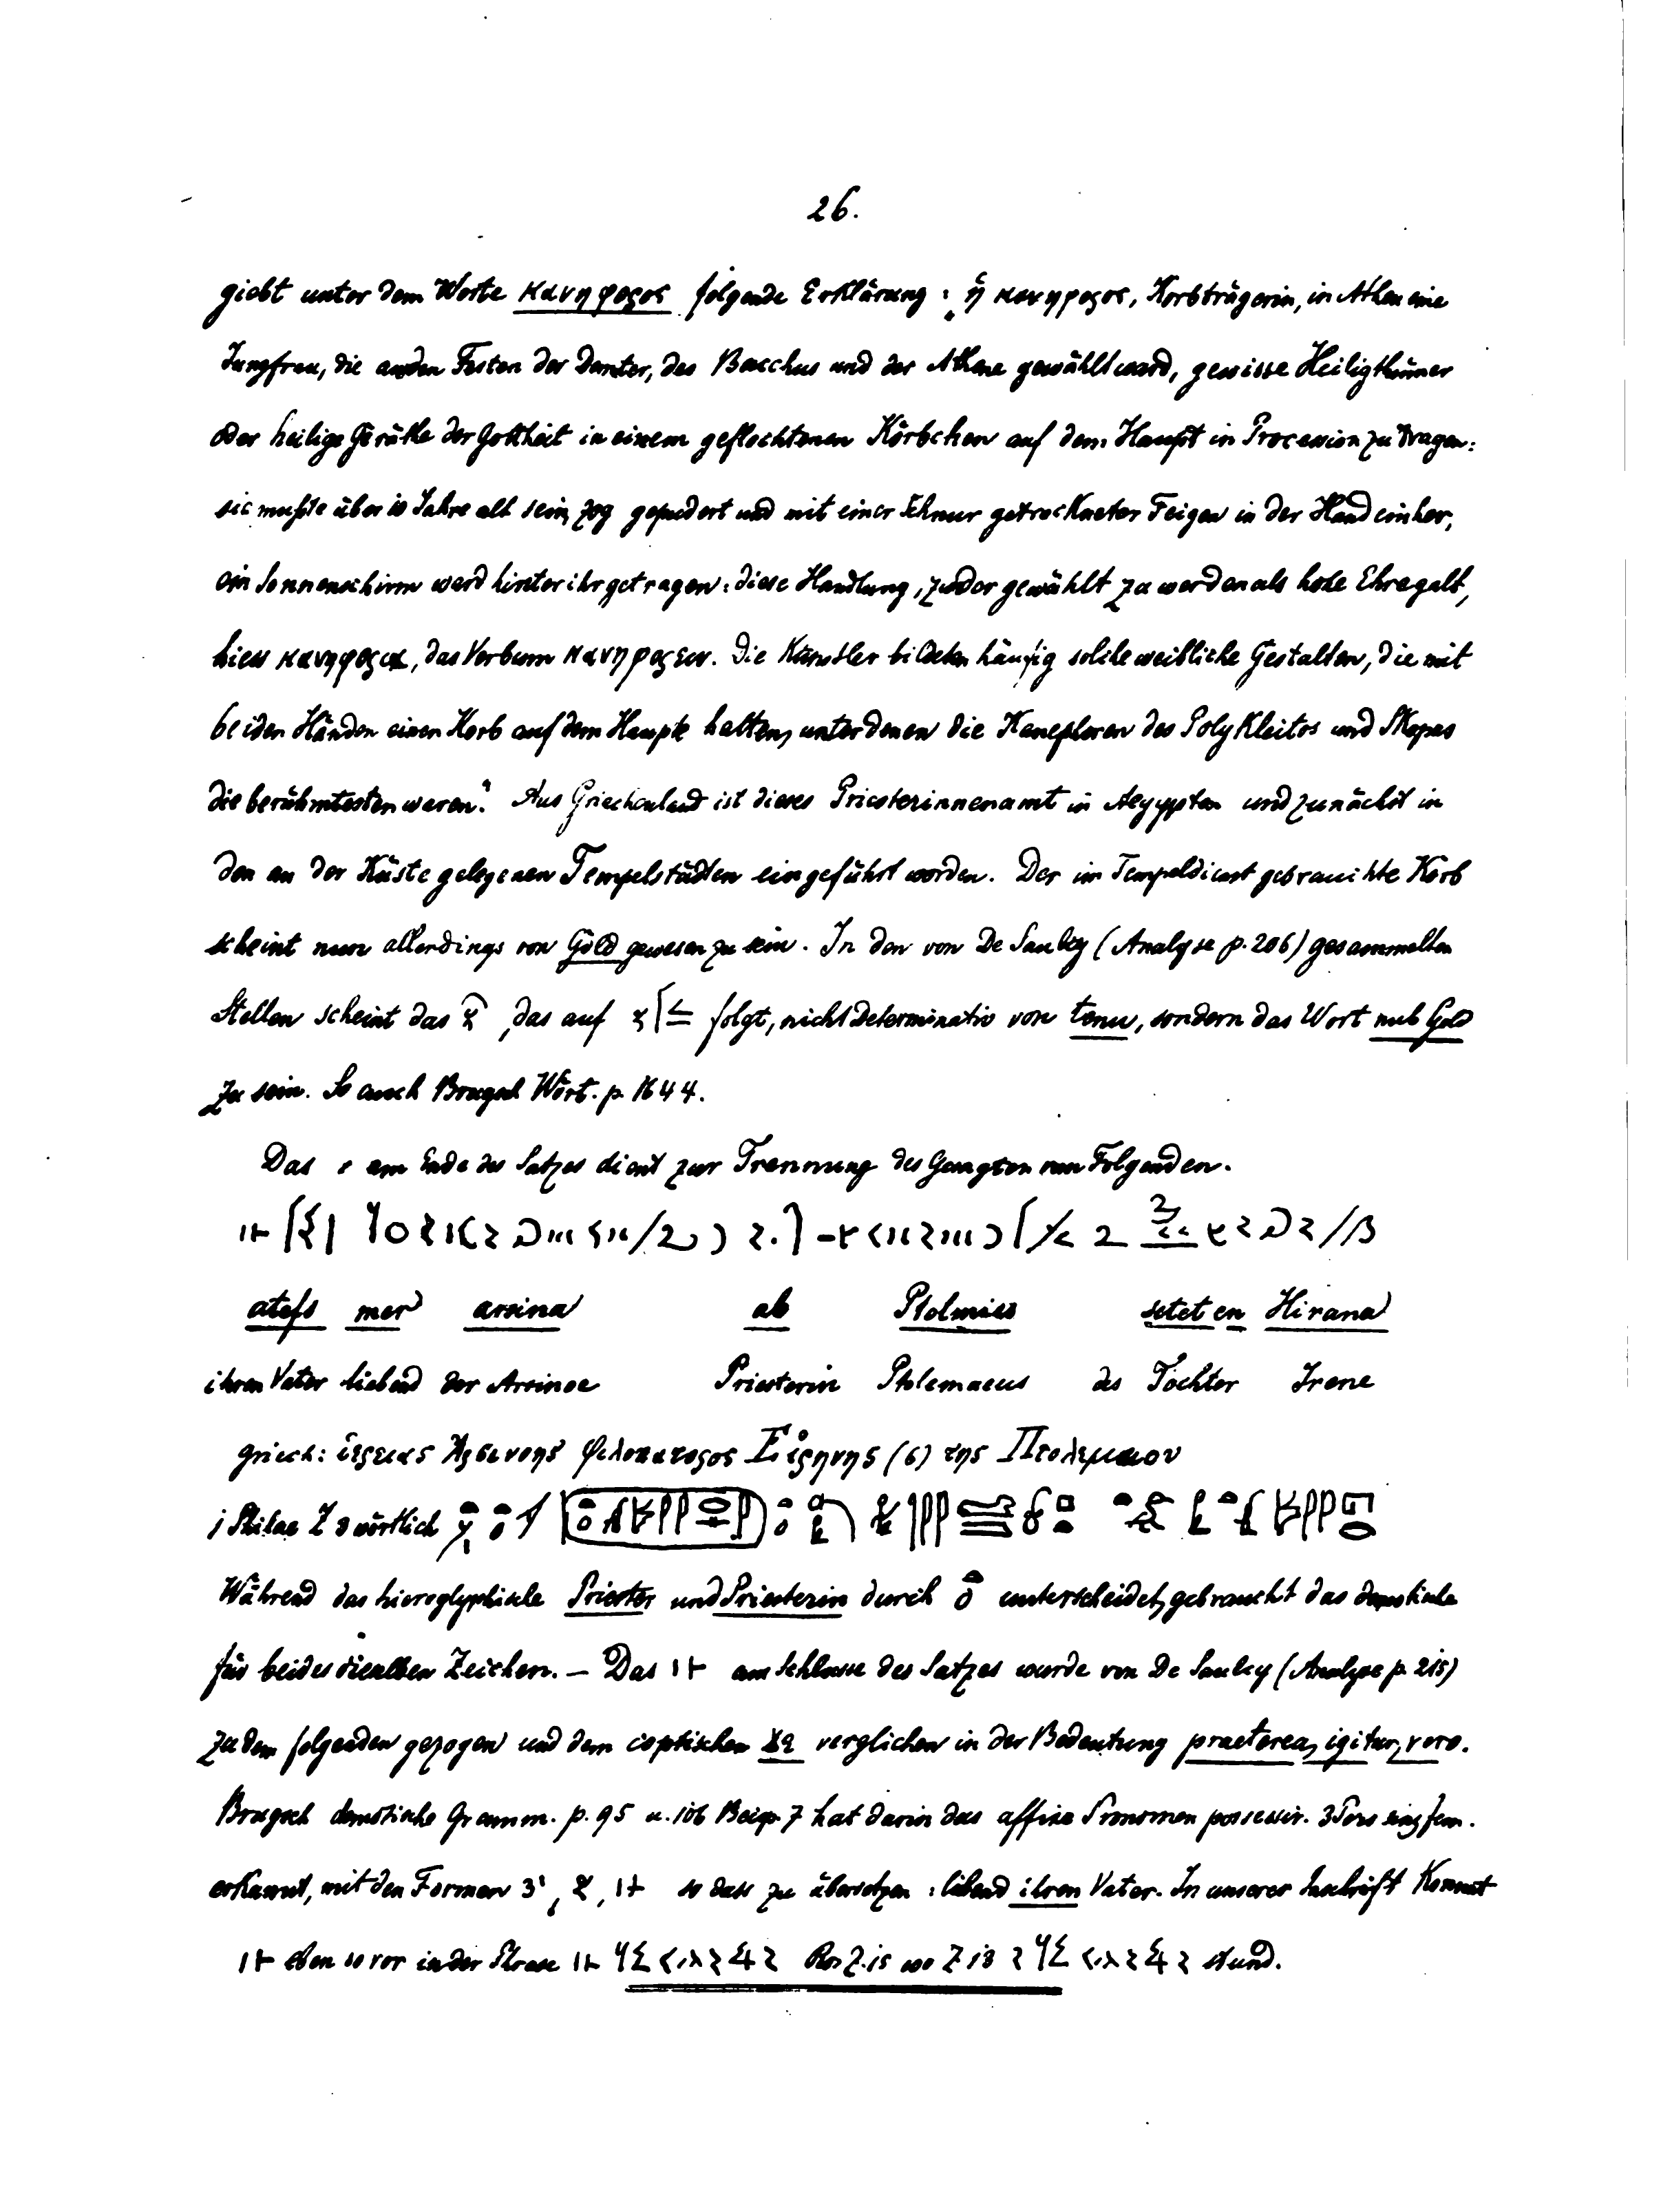 26.
giebt unter dem Worte κανηφορος folgende Erklärung: „ἡ κανηφορος, Korbträgerin, in Athen eine
Jungfrau, die an den Festen der Demeter, des Bacchus und der Athene gewählt ward, gewisse Heiligthümer
oder heilige Geräthe der Gottheit in einem geflochtenen Körbchen auf dem Haupt in Procession zu tragen:
sie mußte über 10 Jahre alt sein, zog gepudert und mit einer Schnur getrockneter Feigen in der Hand einher,
ein Sonnenschirm ward hinter ihr getragen: diese Handlung, zu der gewählt zu werden als hohe Ehre galt,
hiess κανηφορια, das Verbum κανηφορειν. Die Künstler bildeten häufig solche weibliche Gestalten, die mit
beiden Händen einen Korb auf dem Haupte halten, unter denen die Kanephoren des Polykleitos und Skopas
die berühmtesten waren." Aus Griechenland ist dieses Priesterinnenamt in Aegypten und zunächst in
den an der Küste gelegenen Tempelstädten eingeführt worden. Der im Tempeldienst gebrauchte Korb
scheint nun allerdings von Gold gewesen zu sein. In den von De Saulcy (Analyse p. 206) gesammelten
Stellen scheint das , das auf folgt, nicht Determinativ von tenu, sondern das Wort nub Gold
zu sein. So auch Brugsch Wört. p. 1644.
Das am Ende des Satzes dient zur Trennung des Gesagten vom Folgenden.
atefs mer arsina ab Ptolmies setet en Hirana
ihren Vater liebend der Arsinoe Priesterin Ptolemaeus des Tochter Irene
griech: ἱερειας Ἀρσινοης φιλοπατορος Εἰρηνης (6) της Πτολεμαιου
Philae Z 3 wörtlich
Während das hieroglyphische Priester und Priesterin durch unterscheidet, gebraucht das demotische
für beides dieselben Zeichen. – Das am Schlusse des Satzes wurde von De Saulcy (Analyse p. 215)
zu dem folgenden gezogen und dem coptischen verglichen in der Bedeutung praeterea, igitur, vero.
Brugsch demotische Gramm. p. 95 u. 106 Beisp. 7 hat darin das affixe Pronomen possessiv. 3 Pers sing fem.
erkannt, mit den Formen so dass zu übersetzen: liebend ihren Vater. In unserer Inschrift kommt
eben so vor in der Phrase Ros Z. 15 wo Z 18 stund.